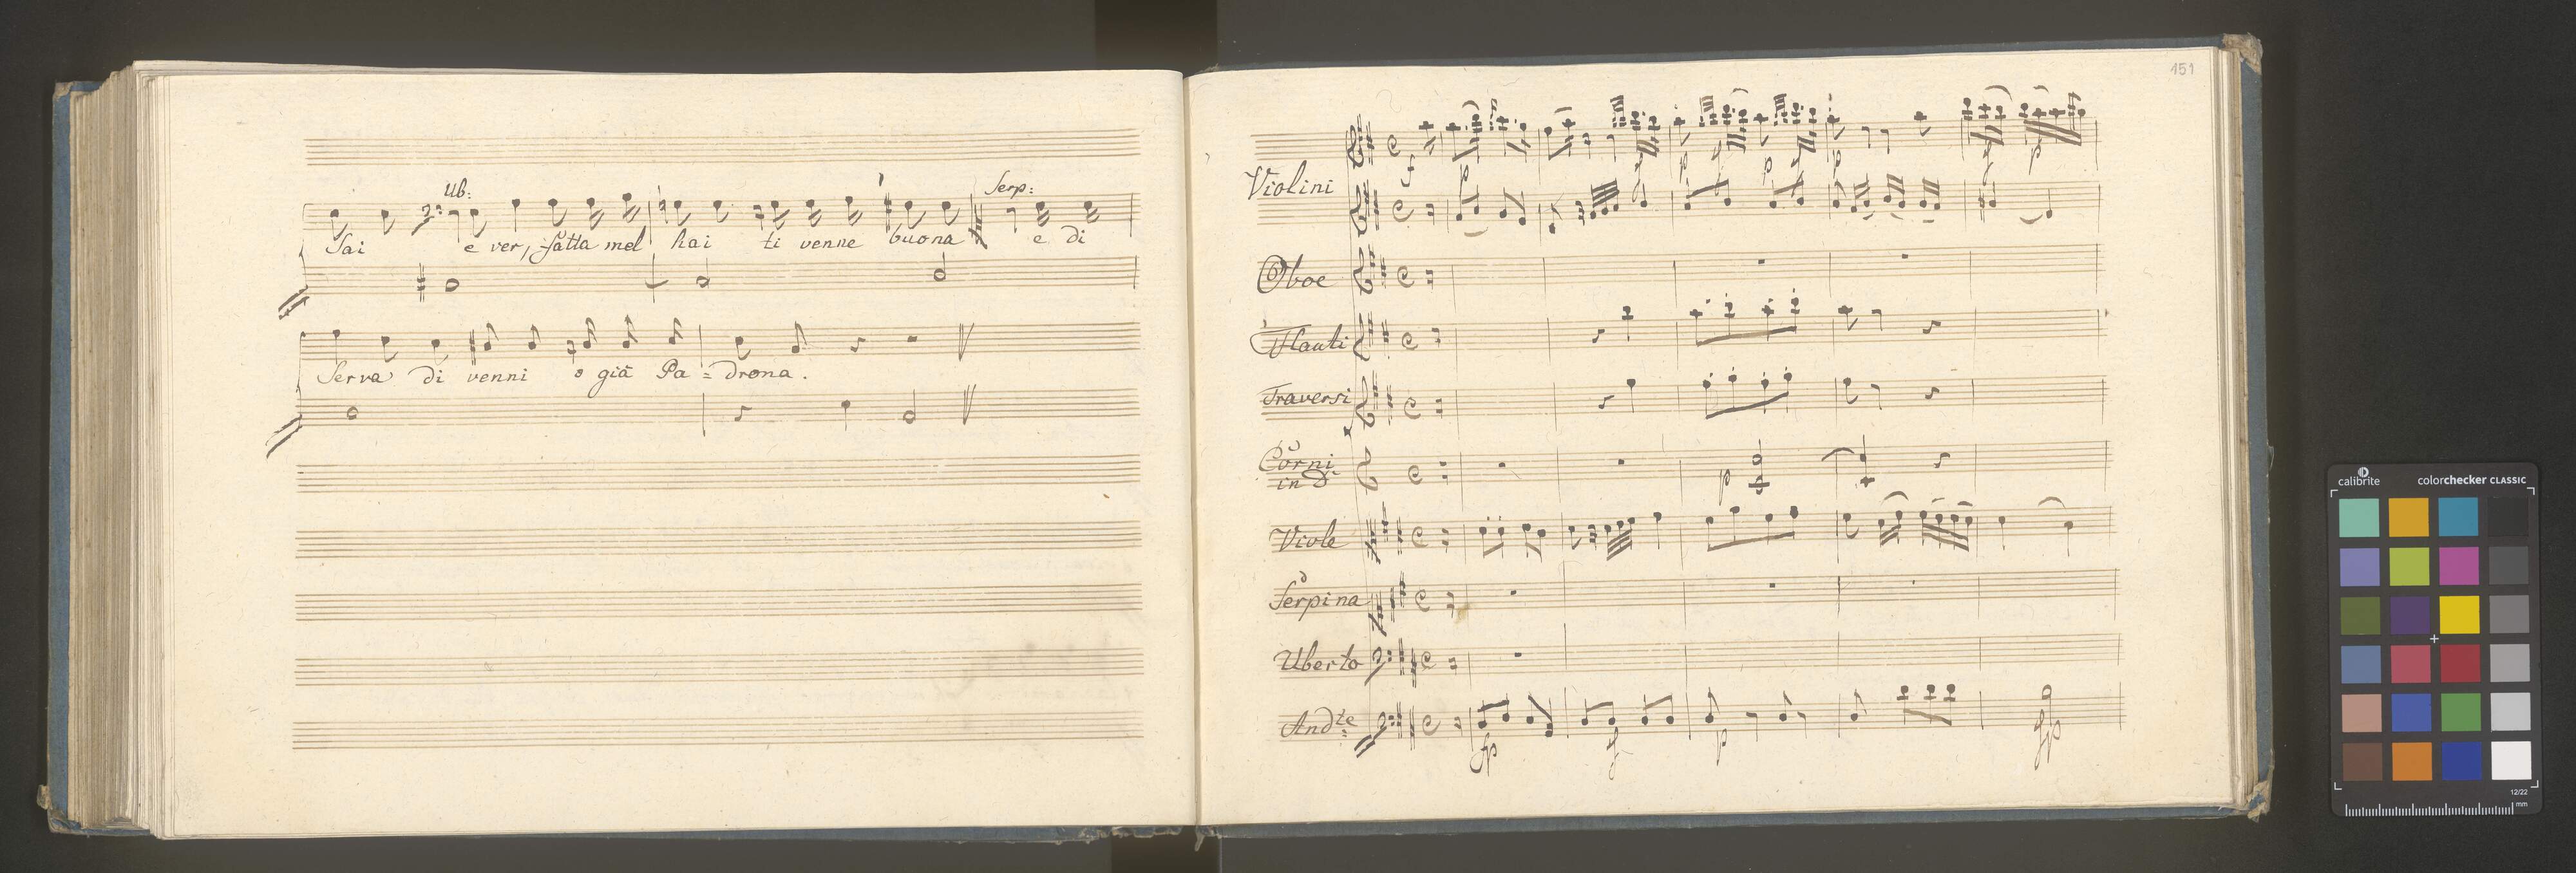 Ub: Serp:
Sai e ver, fatta mel hai ti venne buona e di
Serva di venni o già Pa = drona.
151
Violini
f p f p f p f p f p
Oboe
Flauti
Traversi
Corni
in D
p
Viole
Serpina
Uberto
Andte
fp f p fp
calibrite colorchecker CLASSIC
12/22
mm